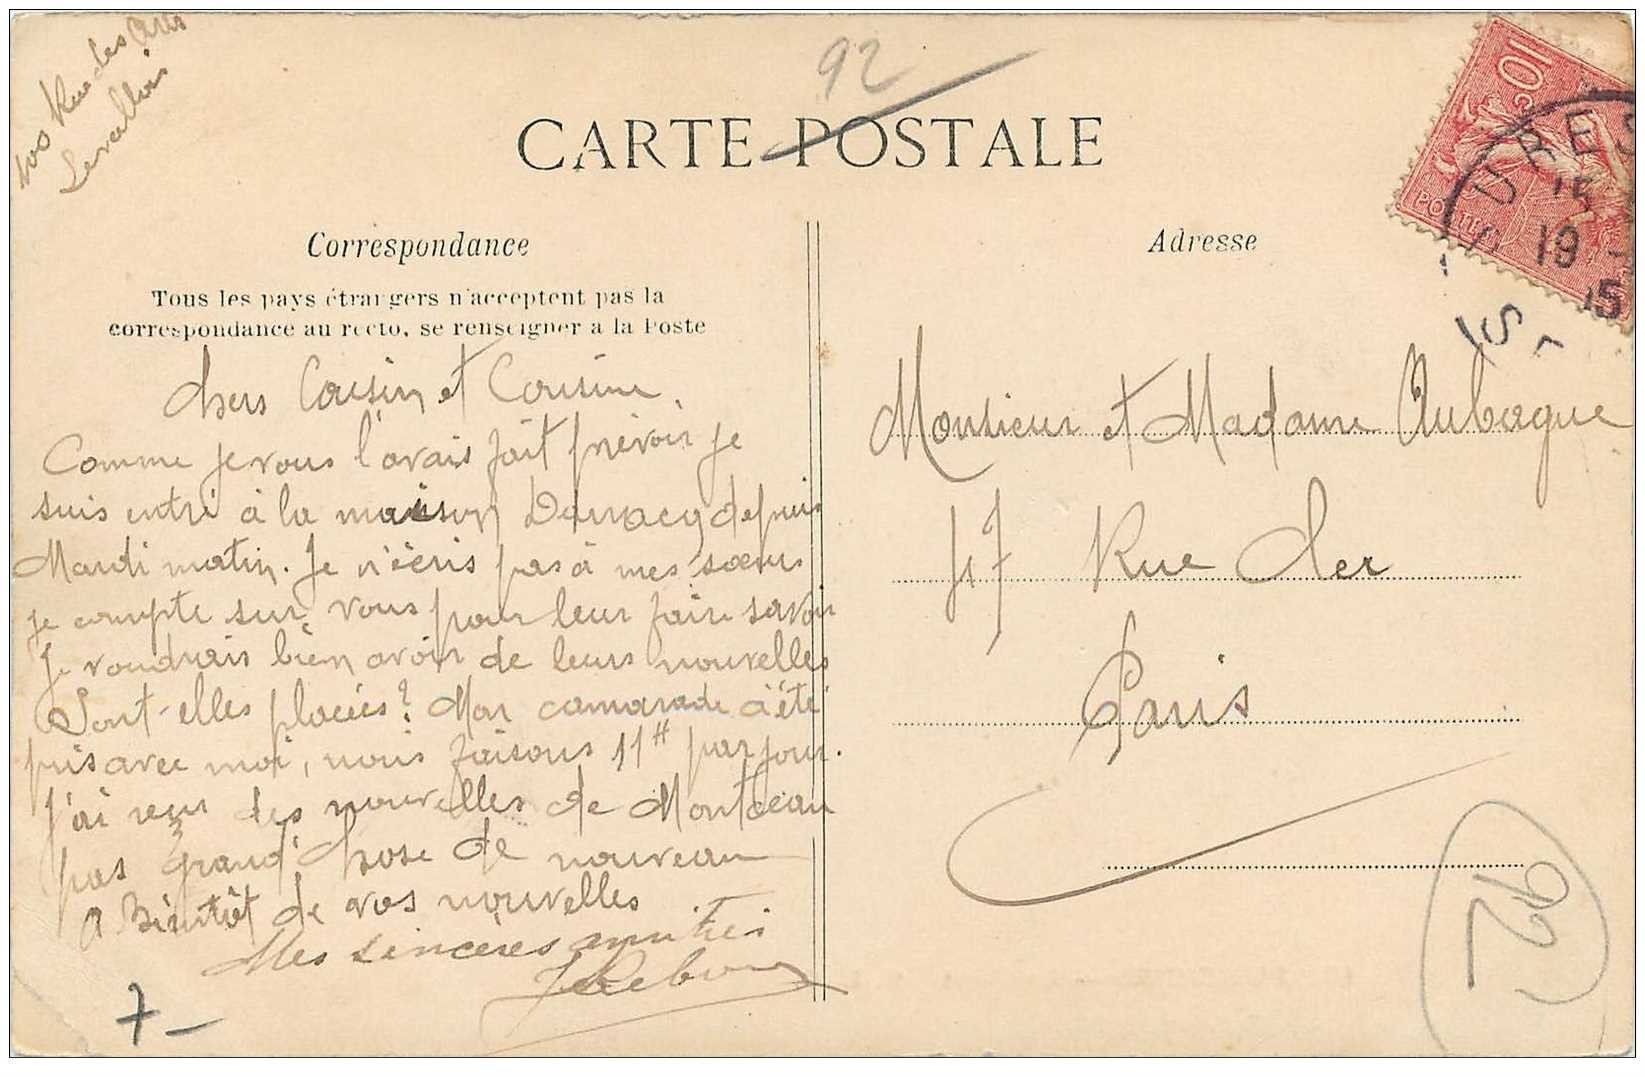 Rue des Arts
Levallois
92
CARTE POSTALE
10c
POSTES
SURES
15
19 -
15
S
Correspondance
Adresse
Tous les pays étrangers n'acceptent pas la
correspondance au recto, se renseigner à la Poste
Chers Cousin et Cousine,
Comme je vous l'avais fait prévoir je
suis entré à la maison Darracq depuis
Mardi matin. Je n'écris pas à mes sœurs
je compte sur vous pour leur faire savoir
Je voudrais bien avoir de leurs nouvelles
Sont-elles placées? Mon camarade a été
pris avec moi, nous faisons 11H par jour.
J'ai reçu des nouvelles de Montceau
pas grand' chose de nouveau
A Bientôt de vos nouvelles
Mes sincères amitiés
Monsieur et Madame Aubague
Rue Cler
Paris
92
7-